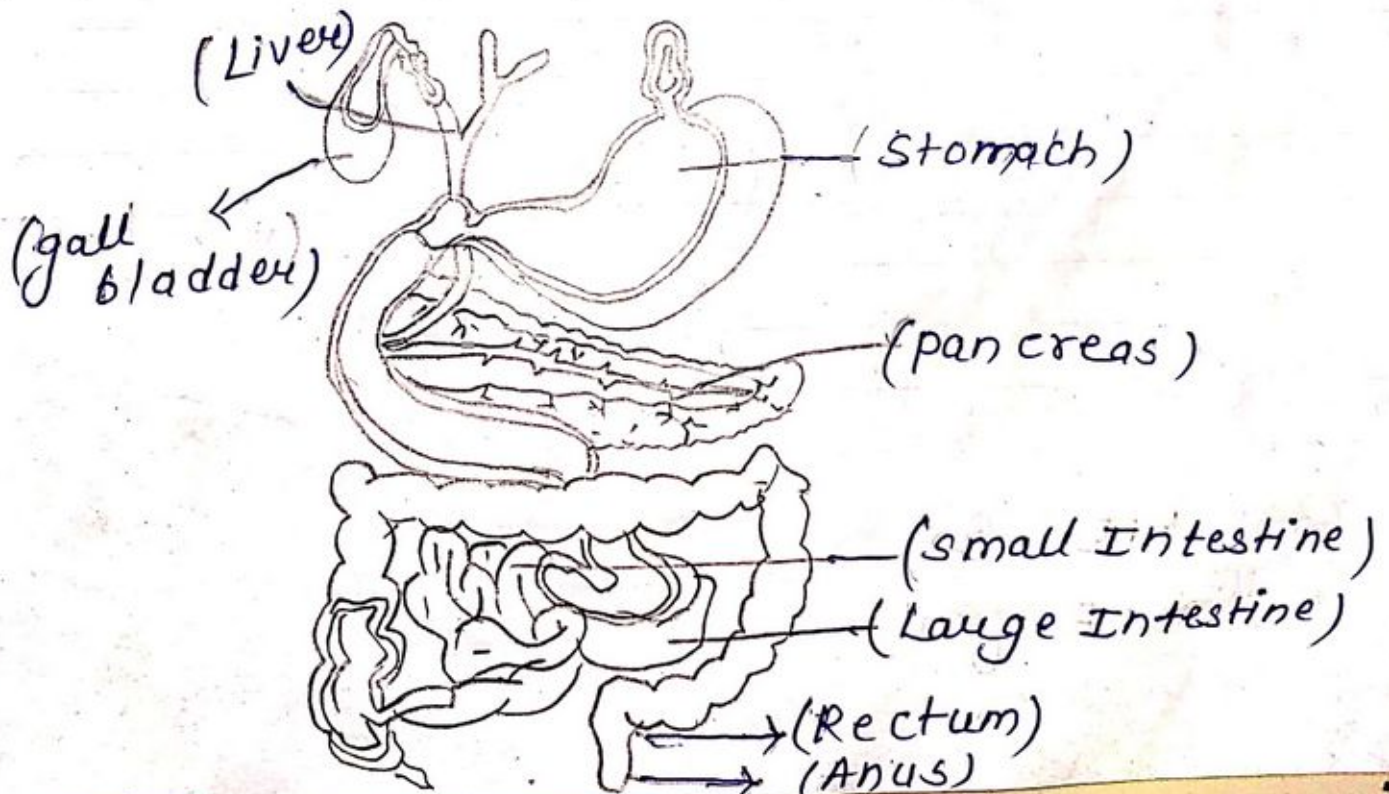 (Liver)
(Stomach)
(gall
bladder)
(pancreas)
(small Intestine)
(Large Intestine)
(Rectum)
(Anus)